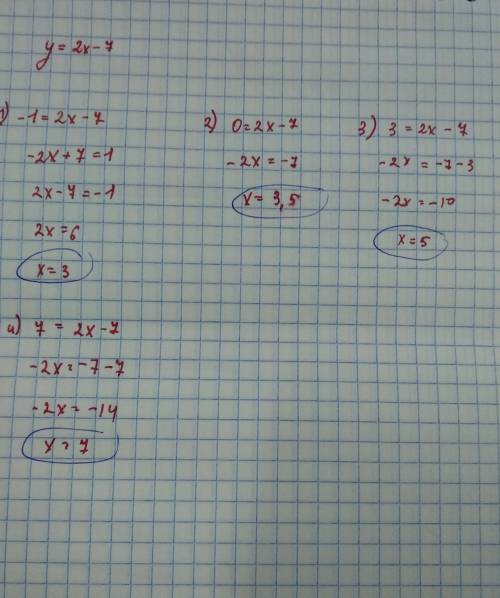 y = 2x - 7
1) -1 = 2x - 7
-2x + 7 = 1
2x - 7 = -1
2x = 6
x = 3
2) 0 = 2x - 7
-2x = -7
x = 3,5
3) 3 = 2x - 7
-2x = -7 - 3
-2x = -10
x = 5
4) 7 = 2x - 7
-2x = -7 - 7
-2x = -14
x = 7